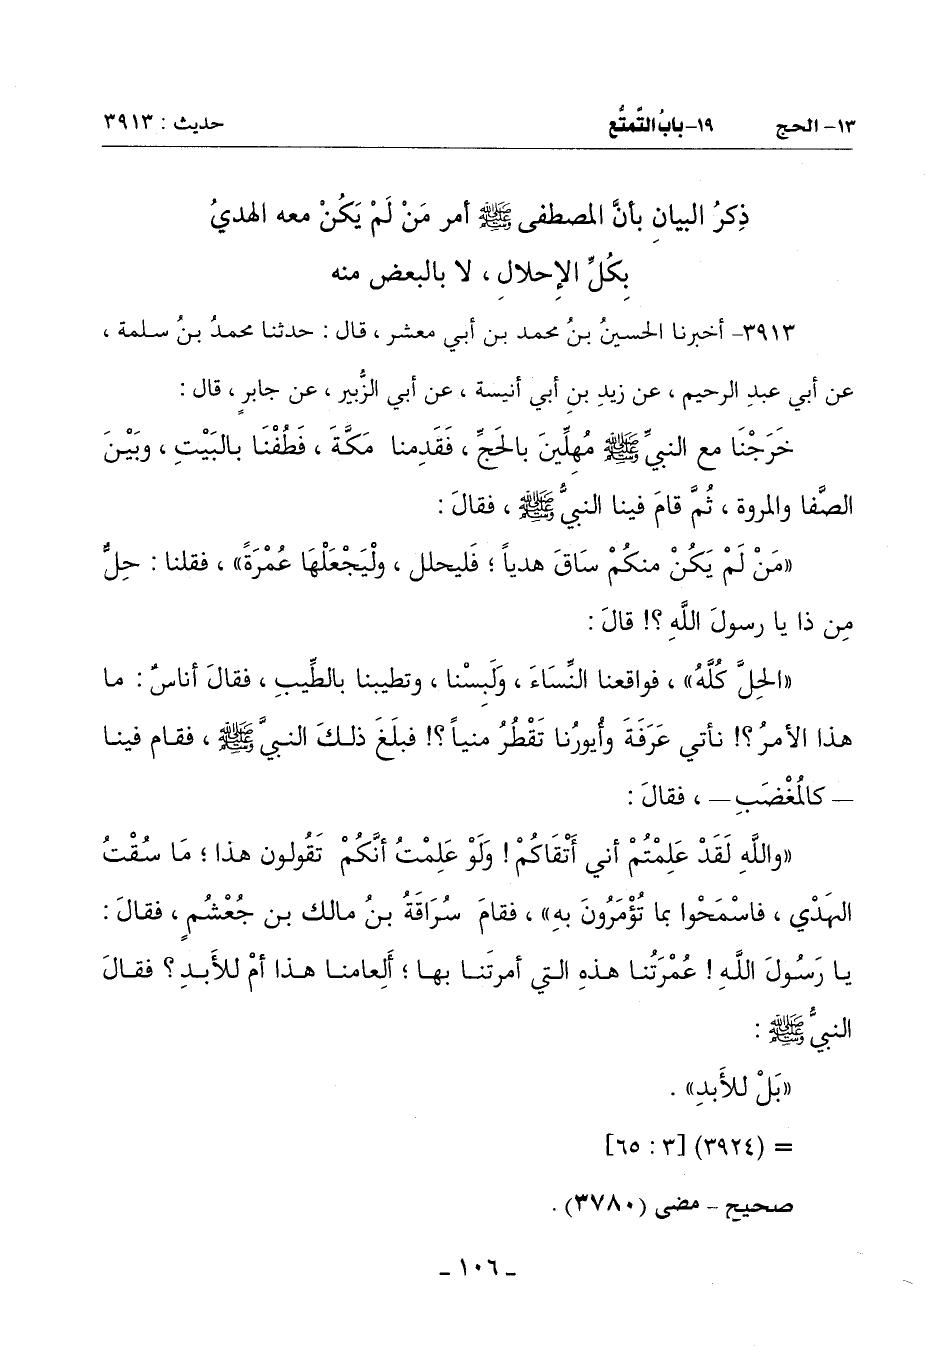 ١٣- الحج ١٩-بابُ التَّمتُّع حديث : ٣٩١٣
ذِكرُ البيانِ بأنَّ المصطفى ﷺ أمر مَنْ لَمْ يَكُنْ معه الهديُ
بِكُلِّ الإحلالِ ، لا بالبعضِ منه
٣٩١٣- أخبرنا الحسينُ بنُ محمد بن أبي معشر ، قال : حدثنا محمدُ بنُ سلمة ،
عن أبي عبدِ الرحيم ، عن زيدِ بنِ أبي أنيسة ، عن أبي الزُّبير ، عن جابرٍ ، قال :
خَرَجْنَا مع النبيِّ ﷺ مُهِلِّينَ بالحَجِّ ، فَقَدِمنا مَكَّةَ ، فَطُفْنَا بالبَيْتِ ، وبَيْنَ
الصَّفا والمروة ، ثُمَّ قامَ فينا النبيُّ ﷺ ، فقالَ :
«مَنْ لَمْ يَكُنْ منكُمْ سَاقَ هدياً ؛ فَليحلل ، ولْيَجْعَلْهَا عُمْرَةً» ، فقلنا : حِلُّ
مِن ذا يا رسولَ اللَّهِ ؟! قالَ :
«الحِلُّ كُلُّهُ» ، فواقعنا النِّسَاءَ ، وَلَبِسْنا ، وتطيبنا بالطِّيبِ ، فقالَ أناسٌ : ما
هذا الأمرُ ؟! نأتي عَرَفَةَ وأُيورُنا تَقْطُرُ منياً ؟! فبلَغَ ذلكَ النبيَّ ﷺ ، فقام فينا
— كالمُغْضَبِ — ، فقالَ :
«واللَّهِ لَقَدْ عَلِمْتُمْ أني أَتْقَاكُمْ ! ولَوْ عَلِمْتُ أنَّكُمْ تَقُولون هذا ؛ مَا سُقْتُ
الهَدْي ، فاسْمَحْوا بما تُؤْمَرُونَ بهِ» ، فقامَ سُرَاقَةُ بنُ مالك بن جُعْشُمٍ ، فقالَ :
يا رَسُولَ اللَّهِ ! عُمْرَتُنا هذهِ التي أمرتَنا بها ؛ أَلِعامنا هذا أمْ للأبدِ ؟ فقالَ
النبيُّ ﷺ :
«بَلْ للأَبدِ» .
= (٣٩٢٤) [٣ : ٦٥]
صحيح - مضى (٣٧٨٠) .
- ١٠٦ -